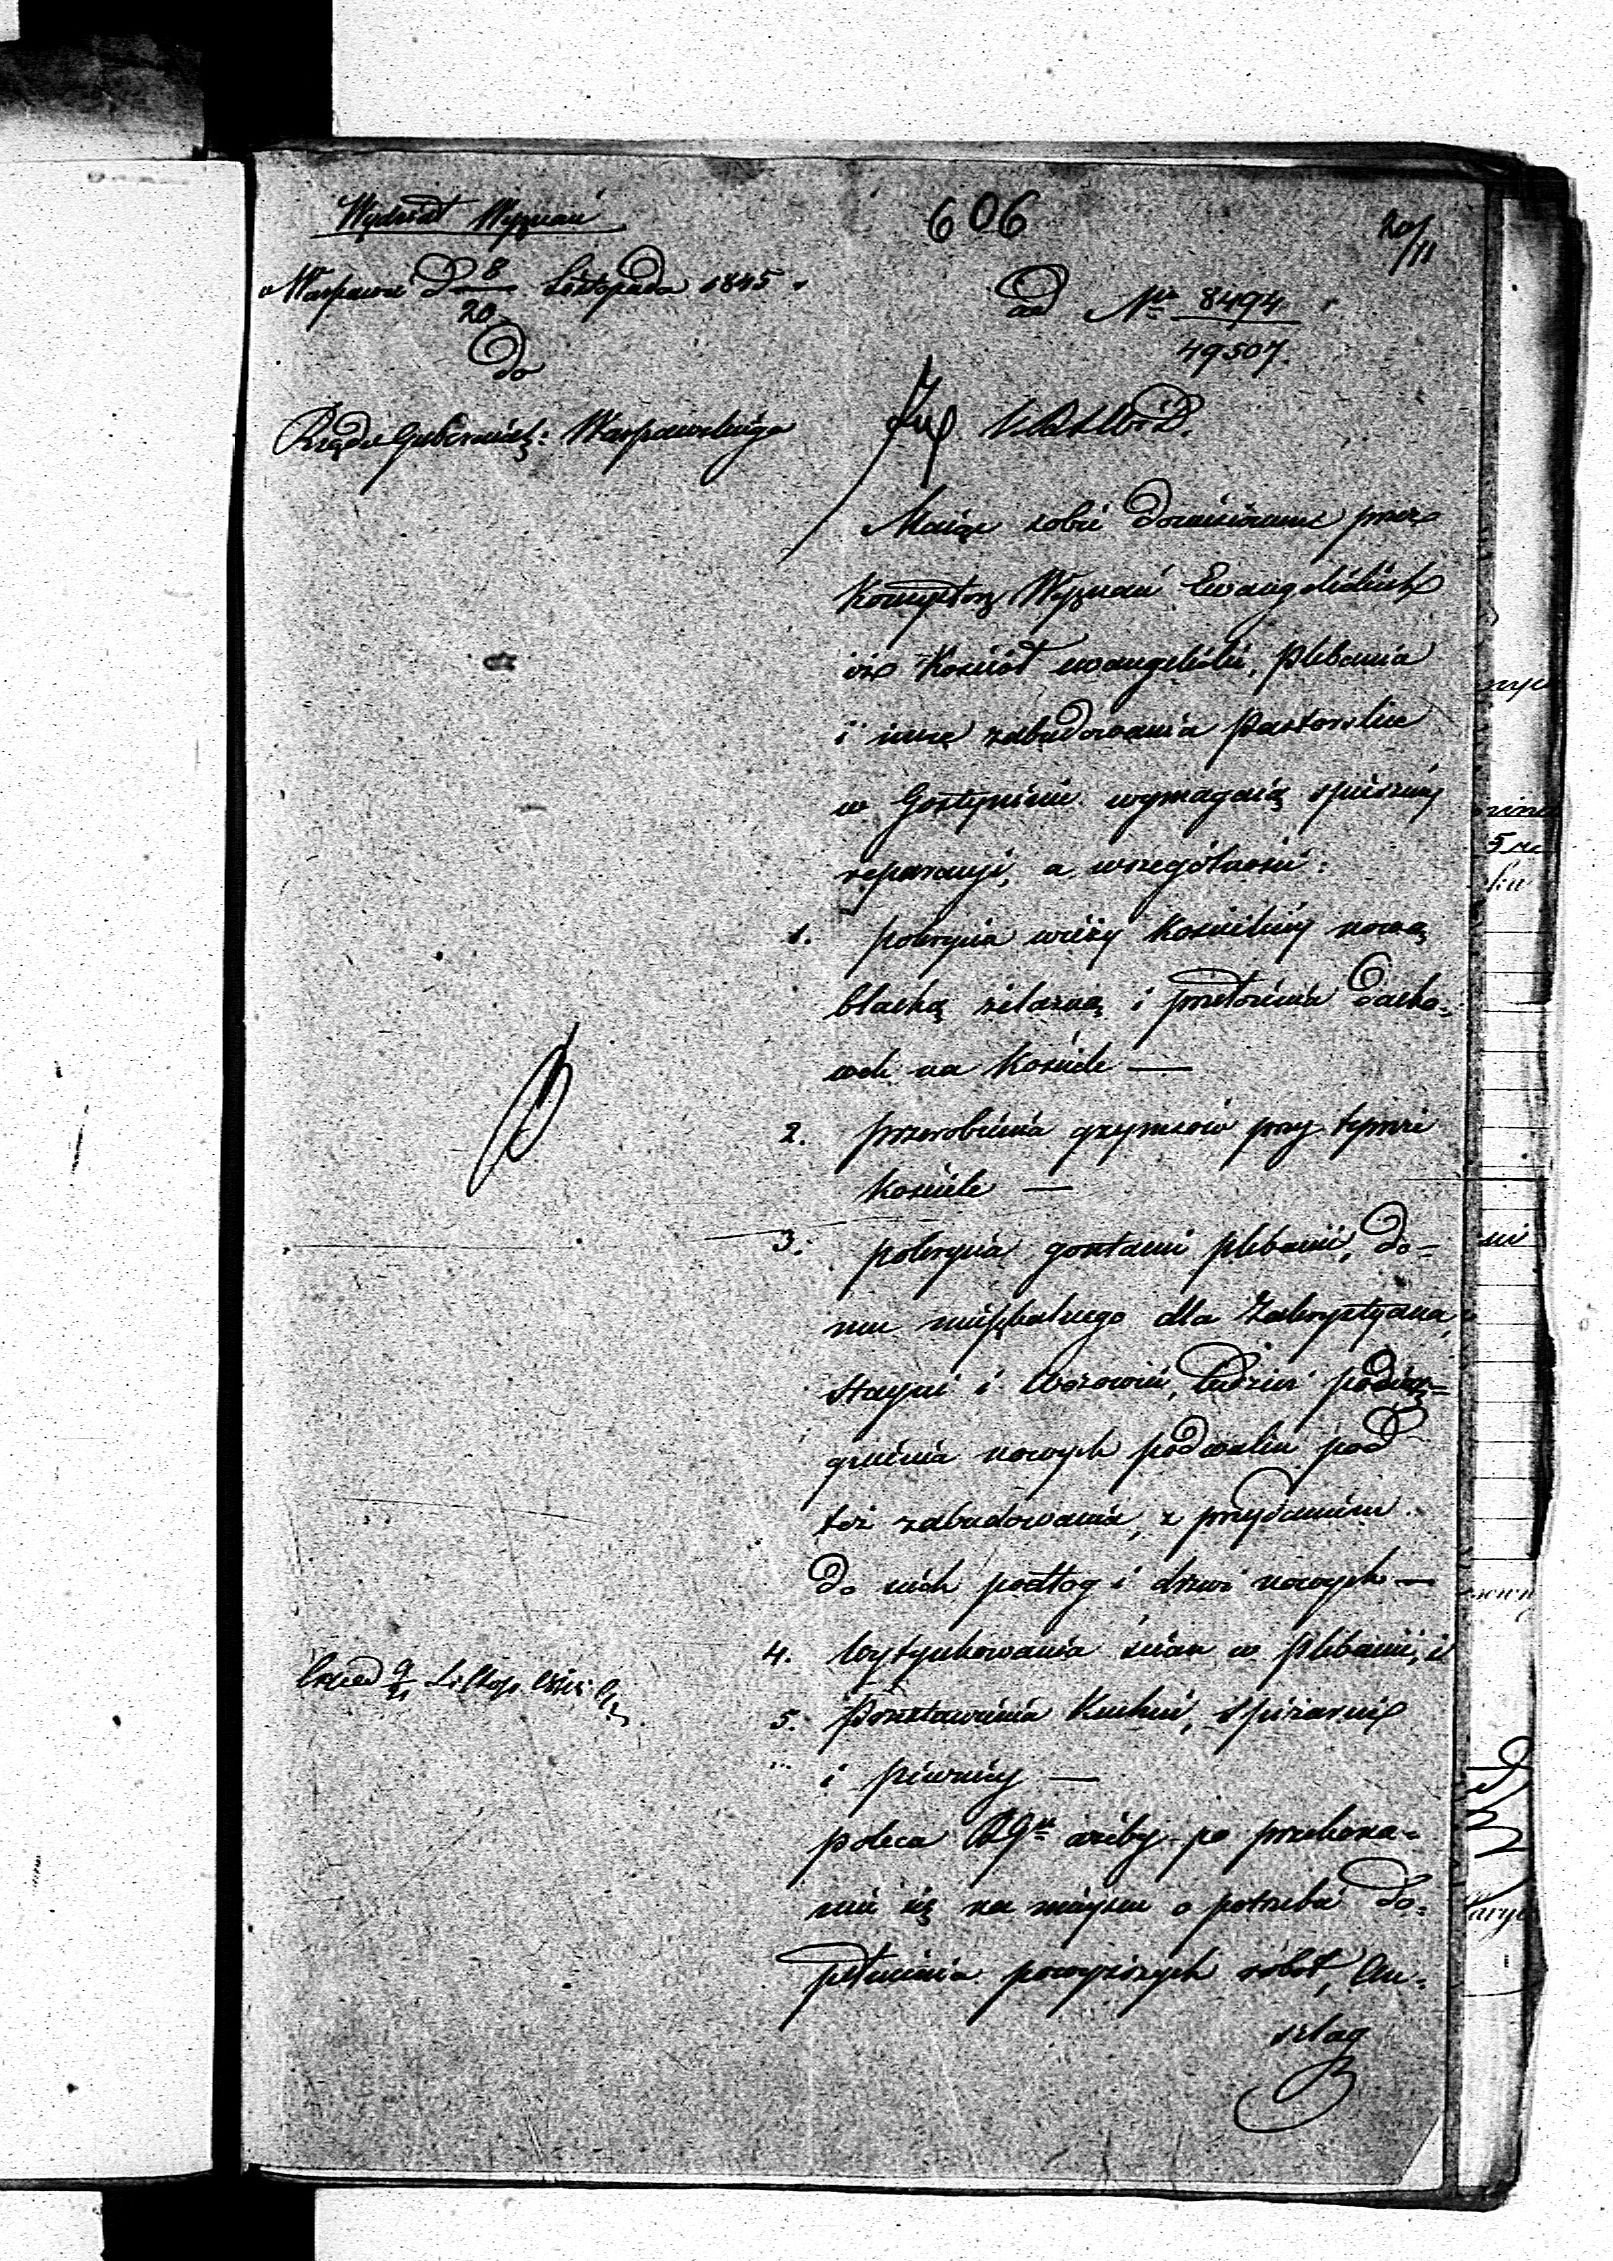 Wydział Wyznań
606
20/11
w Warszawie d 8/20 Listopada 1845.
ad Nr 8494/49507.
do
Rządu Gubernial: Warszawskiego
Maiąc sobie doniesione przez
Konsystorz Wyznań Ewangelickich
iż Kościół ewangelicki, plebania
i inne zabudowania Pastorskie
w Gostyninie wymagaią spieszney
reparacyi, a wszczególności:
1. pokrycia wieży kościelney nową
blachą żelazną i przełożenia dachó-
wek na Kościele —
2. przerobienia gzymsów przy tymże
Kościele —
3. pokrycia gontami plebanii, do-
mu mieszkalnego dla Zakrystyana,
stayni i Wozowni, tudzież podcią-
gnienia nowych podwalin pod
też zabudowania, z przydaniem
do nich podłog i drzwi nowych —
4. Wytynkowania ścian w plebanii, i
5. Postawienia Kuchni, Spiżarni
i piwnicy —
poleca RGu ażeby po przekona-
niu się na mieyscu o potrzebie do-
pełnienia powyższych robót, An-
szlag